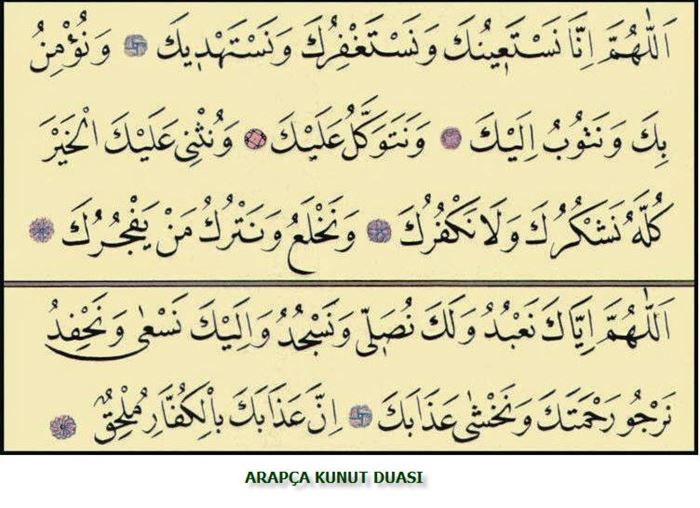 اَللّٰهُمَّ اِنَّا نَسْتَعِينُكَ وَنَسْتَغْفِرُكَ وَنَسْتَهْدِيكَ وَنُؤْمِنُ
بِكَ وَنَتُوبُ اِلَيْكَ وَنَتَوَكَّلُ عَلَيْكَ وَنُثْنِى عَلَيْكَ الْخَيْرَ
كُلَّهُ نَشْكُرُكَ وَلَا نَكْفُرُكَ وَنَخْلَعُ وَنَتْرُكُ مَنْ يَفْجُرُكَ
اَللّٰهُمَّ اِيَّاكَ نَعْبُدُ وَلَكَ نُصَلِّى وَنَسْجُدُ وَاِلَيْكَ نَسْعٰى وَنَحْفِدُ
نَرْجُو رَحْمَتَكَ وَنَخْشٰى عَذَابَكَ اِنَّ عَذَابَكَ بِالْكُفَّارِ مُلْحِقٌ
ARAPÇA KUNUT DUASI